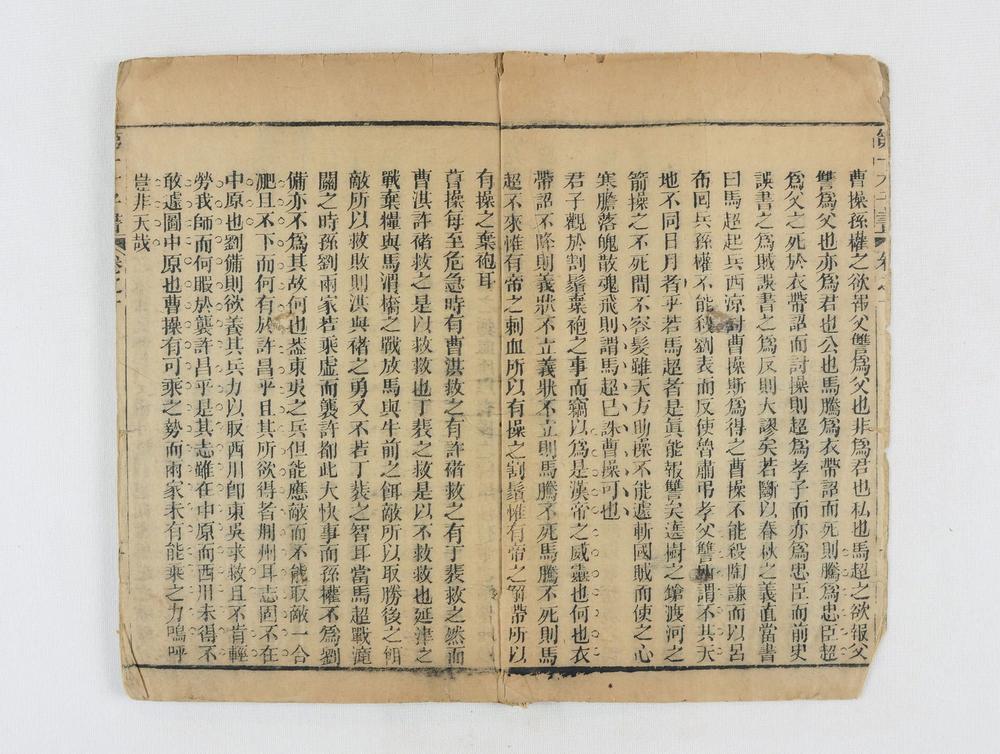 曹操孫權之欲報父讐爲父也非爲君也私也馬超之欲報父
讐爲父也亦爲君也公也馬騰爲衣帶詔而死則騰爲忠臣超
爲父之死於衣帶詔而討操則超爲孝子而亦爲忠臣而前史
誤書之爲賊誤書之爲反則大謬矣若斷以春秋之義直當書
曰馬超起兵西涼討曹操斯爲得之曹操不能殺陶謙而以呂
布囘兵孫權不能殺劉表而反使魯肅弔孝父讐所謂不共天
地不同日月者乎若馬超者是眞能報讐矣選樹之鎗渡河之
箭操之不死間不容髪雖天方助操不能遽斬國賊而使之心
寒膽落魄散魂飛則謂馬超已誅曹操可也
君子觀於割鬚棄袍之事而竊以爲是漢帝之威靈也何也衣
帶詔不降則義狀不立義狀不立則馬騰不死馬騰不死則馬
超不來惟有帝之刺血所以有操之割鬚惟有帝之箭帶所以
有操之棄袍耳
曹操每至危急時有曹洪救之有許褚救之有丁裴救之然而
曹洪許褚救之是以救救也丁裴之救是以不救救也延津之
戰棄糧與馬濆橋之戰放馬與牛前之餌敵所以取勝後之餌
敵所以救敗則洪與褚之勇又不若丁裴之智耳當馬超戰潼
關之時孫劉兩家若乘虛而襲許都此大快事而孫權不爲劉
備亦不爲其故何也葢東吳之兵但能應敵而不能取敵一合
淝且不下而何有於許昌乎且其所欲得者荆州耳志固不在
中原也劉備則欲養其兵力以取西川卽東吳求救且不肯輕
勞我師而何暇於襲許昌乎是其志雖在中原而西川未得不
敢遽圖中原也曹操有可乘之勢而兩家未有能乘之力嗚呼
豈非天哉